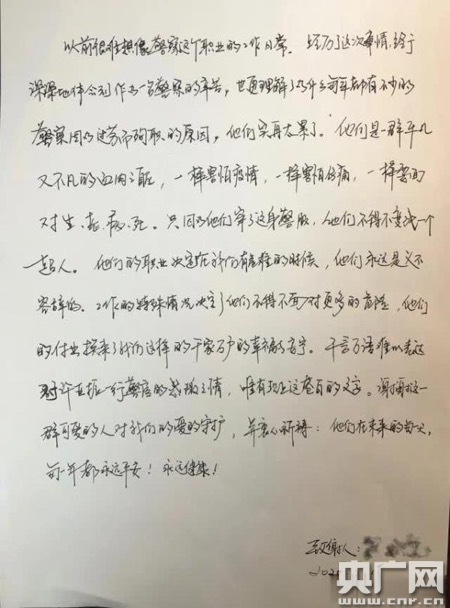 以前很难想像警察这个职业的工作日常。经历了这次事情,终于
深深地体会到作为一名警察的辛苦,也更理解了为什么每年都有不少的
警察因公过劳而殉职的原因,他们实在太累了。他们是一群平凡
又不凡的血肉之躯,一样害怕疫情,一样害怕伤痛,一样要面
对生、老、病、死。只因为他们穿了这身警服,他们不得不变成一个
超人。他们的职业决定在我们有危难的时候,他们永远是义不
容辞的。工作的特殊情况决定了他们不得不面对更多的危险,他们
的付出换来了我们这样的千家万户的幸福与安宁。千言万语难以表达
对许 行警官的感激之情,唯有献上这苍白的文字。谢谢这一
群可爱的人对我们的爱的守护,并衷心祈祷:他们在未来的每一天,
每一年都永远平安!永远健康!
致谢人:
202
央广网
www.cnr.cn